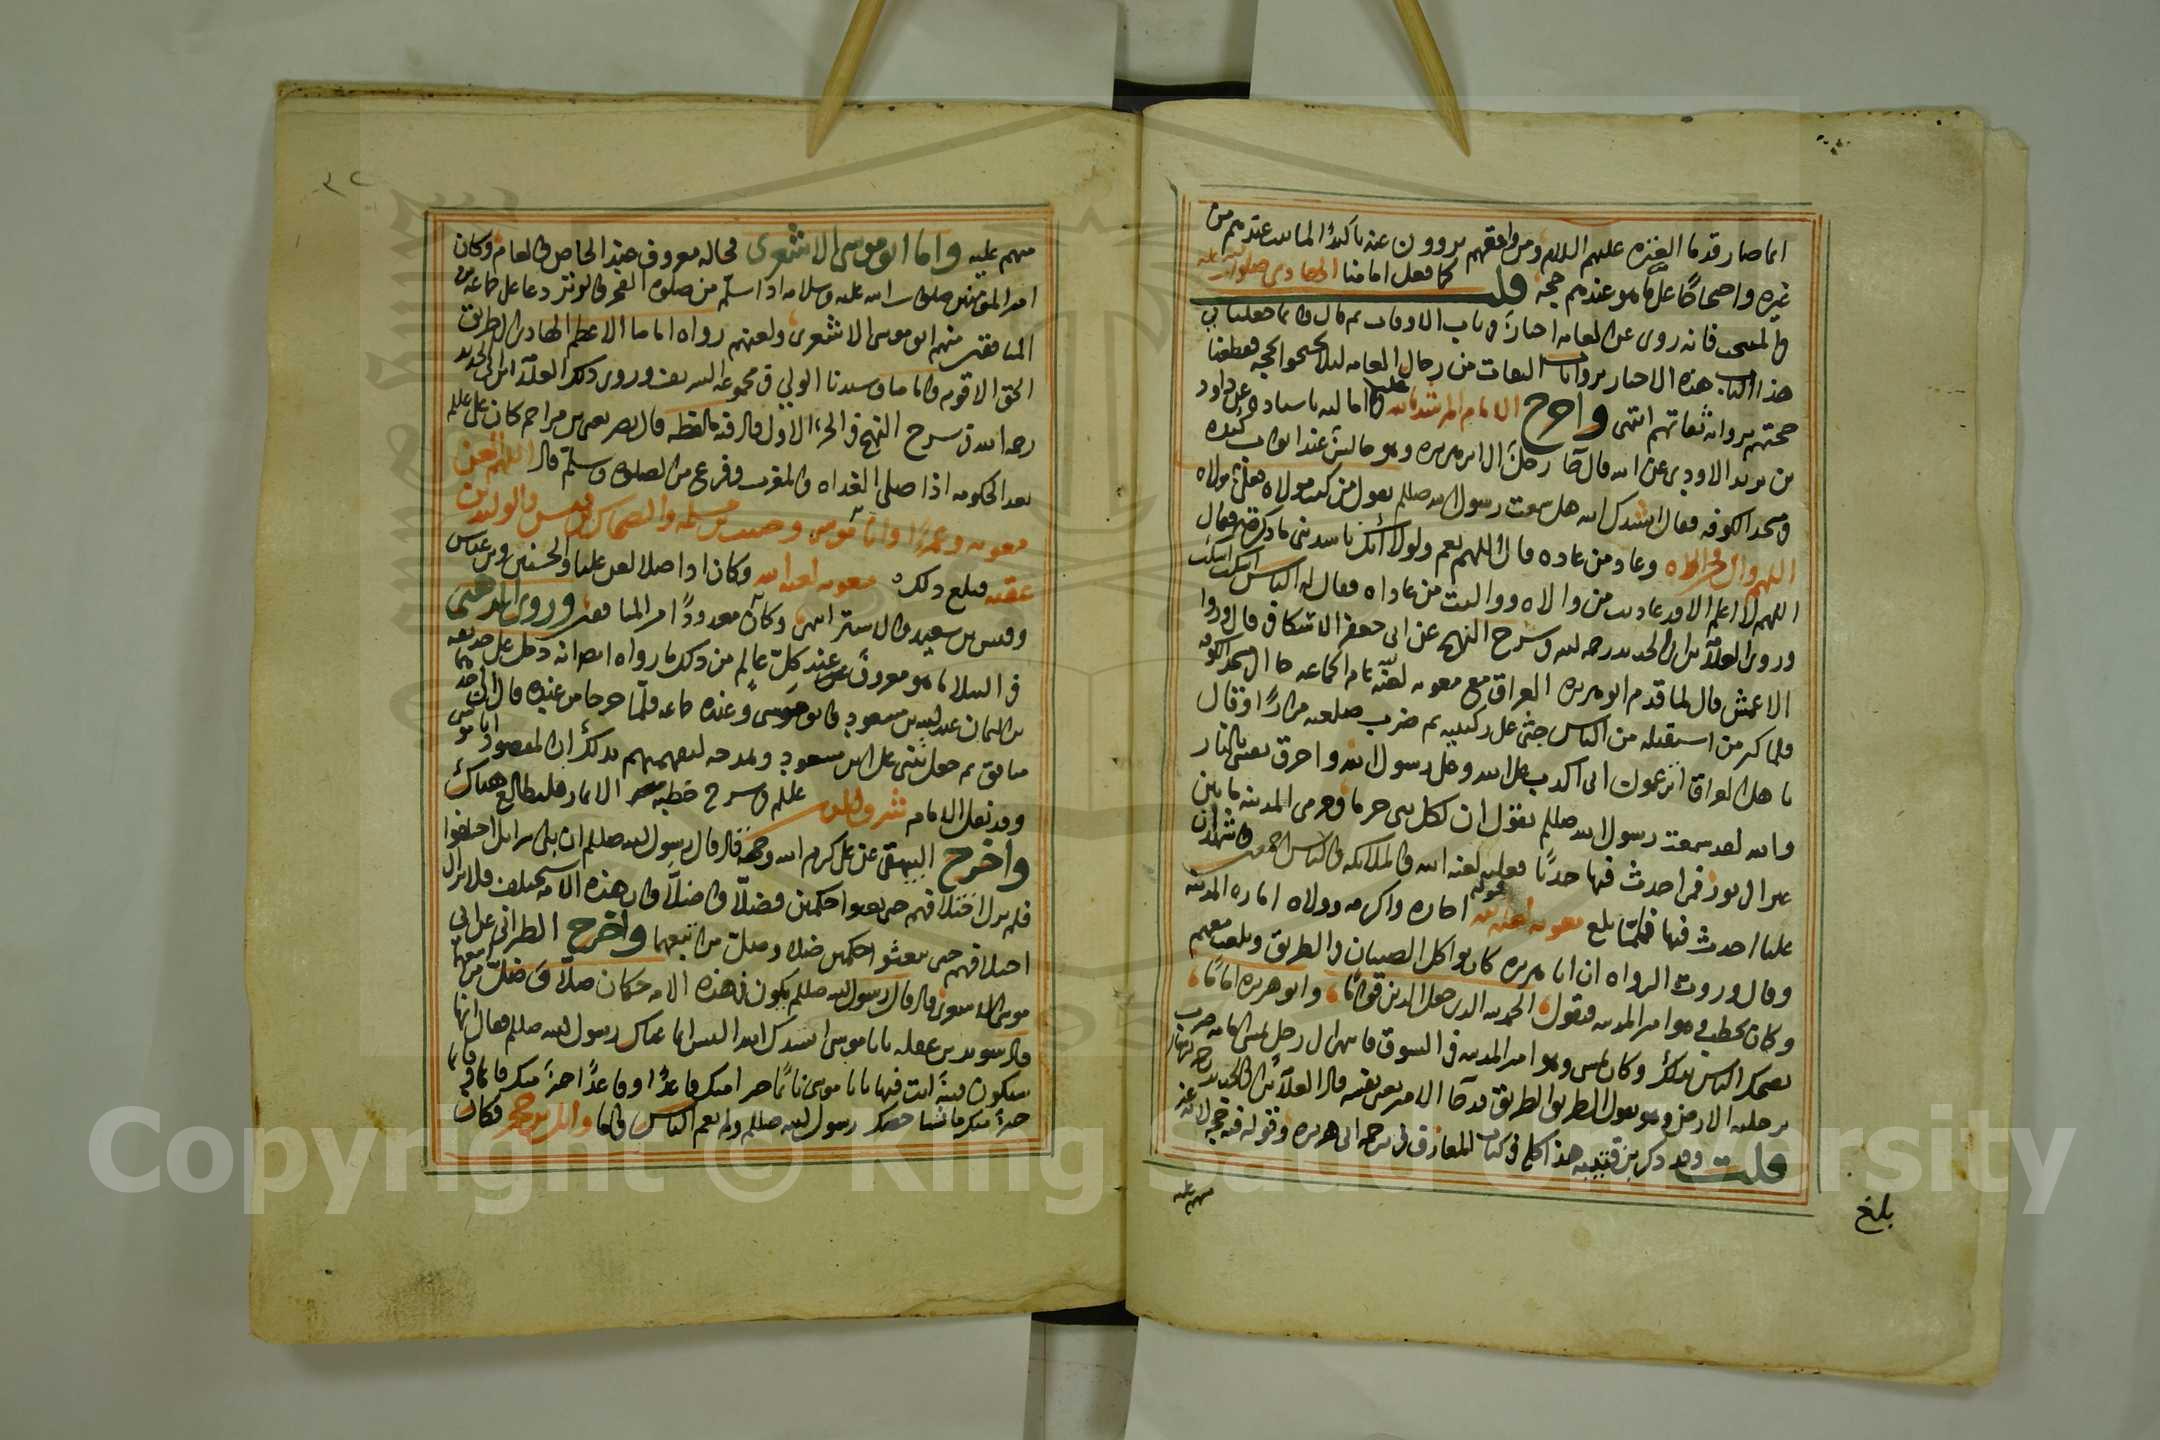 انما صار قدما العترة عليهم السلام ومن وافقهم يروون عنه تاكيدًا لما ثبت عندهم من
غيره واحتجاجًا على بما هو عندهم حجه قلت كما فعل امامنا الهادي صلوات الله عليه
في المنتخب فانه روى عن العامه اخبارًا في باب الاوقات ثم قال وانما جعلنا في
هذا الكتاب هذه الاخبار بروايات الثقات من رجال العامه ليلا يحتجوا بحجه فقطعنا
حجتهم بروايه ثقاتهم انتهى واخرج الامام المرشد بالله عليلم في اماليه باسناده عن داود
بن يزيد الاودي عن ابيه قال جا رجل الى ابي هريره وهو جالس عند ابواب كنده
في مسجد الكوفه فقال انشدك الله هل سمعت رسول الله صللم يقول من كنت مولاه فعلي مولاه
اللهم وال من والاه وعاد من عاداه قال اللهم نعم ولولا انك ناشدتني ما ذكرته فقال
اللهم لا اعلم الا قد عاديت من والاه وواليت من عاداه فقال له الناس اسكت اسكت
وروى العلامة بن ابي الحديد رحمه الله في شرح النهج عن ابي جعفر الاسكافي قال وروا
الاعمش قال لما قدم ابو هريره العراق مع معويه لعنه الله عام الجماعه جا الى مسجد الكوفه
فلما كثر من استقبله من الناس جثى على ركبتيه ثم ضرب صلعته مرارًا وقال
يا هل العراق اتزعمون اني اكذب على الله وعلى رسول الله واحرق نفسي بالنار
والله لقد سمعت رسول الله صللم يقول ان لكل نبي حرما وحرمي المدينه ما بين
عير الى ثور فمن احدث فيها حدثًا فعليه لعنه الله والملائكه والناس اجمعين واشهد ان
عليا احدث فيها فلما بلغ معويه لعنه الله قوله اجازه واكرمه وولاه اماره المدينه
وقال وروت الرواه ان ابا هريره كان يواكل الصبيان في الطريق ويلعب معهم
وكان يخطب وهو امير المدينه فيقول الحمد لله الذي جعل الدين قيامًا، وابو هريره امامًا،
يضحك الناس بذلك وكان يمشي وهو امير المدينه في السوق فاذا انتهى الى رجل يمشي امامه ضرب
برجليه الارض وهو يقول الطريق الطريق قد جا الامير يعني نفسه قال العلامة بن ابي الحديد رحمه الله تعالى
قلت وقد ذكر بن قتيبه هذا كله في كتاب المعارف في ترجمه ابي هريره وقوله فيه حجه لانه غير
متهم عليه
بلغ
٣٢
متهم عليه واما ابو موسى الاشعرى فحاله معروف عند الخاص والعام وكان
امير المؤمنين صلوات الله عليه وسلامه اذا سلم من صلوه الفجر والوتر دعا على جماعه من
المنافقين منهم ابو موسى الاشعري ولعنهم رواه امامنا الاعظم الهادي الى الطريق
الحق الاقوم وامامنا وسيدنا الولي في مجموعه الشريف وروى ذلك العلامة ابن ابي الحديد
رحمه الله في شرح النهج في الجزء الاول قال فيه ما لفظه قال نصر يعني بن مزاحم كان علي عليلم
بعد الحكومه اذا صلى الغداه والمغرب وفرغ من الصلوه وسلم قال اللهم العن
معويه وعمرًا وابا موسى وحبيب بن مسلمه والضحاك بن قيس والوليد بن
عقبه فبلغ ذلك معويه لعنه الله وكان اذا صلا لعن عليا والحسنين وبن عباس
وقيس بن سعيد والاشتر انتهى وكان معدودًا من المنافقين وروى الذهبي
في النبلاء ما هو معروف عند كل عالم من ذلك ما رواه ايضا انه دخل على حذيفه
بن اليمان عبد الله بن مسعود وابو موسى وعنده جماعه فلما خرجا من عنده قال ان احدهما
منافق ثم جعل يثني على ابن مسعود ويمدحه ليفهمهم بذلك ان المقصود ابا موسى
وقد نقل الامام شرف الدين عليلم في شرح خطبه الاثمار فليطالع هناك
واخرج البيهقي عن علي كرم الله وجهه قال قال رسول الله صللم ان بني اسرائيل اختلفوا
فلم يزل اختلافهم حتى بعثوا حكمين فضلّا واضلّا وان هذه الامه ستختلف فلا يزال
اختلافهم حتى يبعثوا حكمين ضلا وضل من اتبعهما واخرج الطبراني عن ابي
موسى الاشعري قال قال رسول الله صللم يكون في هذه الامه حكمان ضالّان وضال من اتبعهما
قال سويد بن غفله يا با موسى انشدك الله اليس انما عناك رسول الله صللم فقال انها
ستكون فتنةً انت فيها يا با موسى نائمًا خير امنك قاعدًا وقاعدًا خيرً منك قائما وقائما
خيرً منك ماشيا فخصك رسول الله صللم ولم يعم الناس واما وائل بن حجر فكان